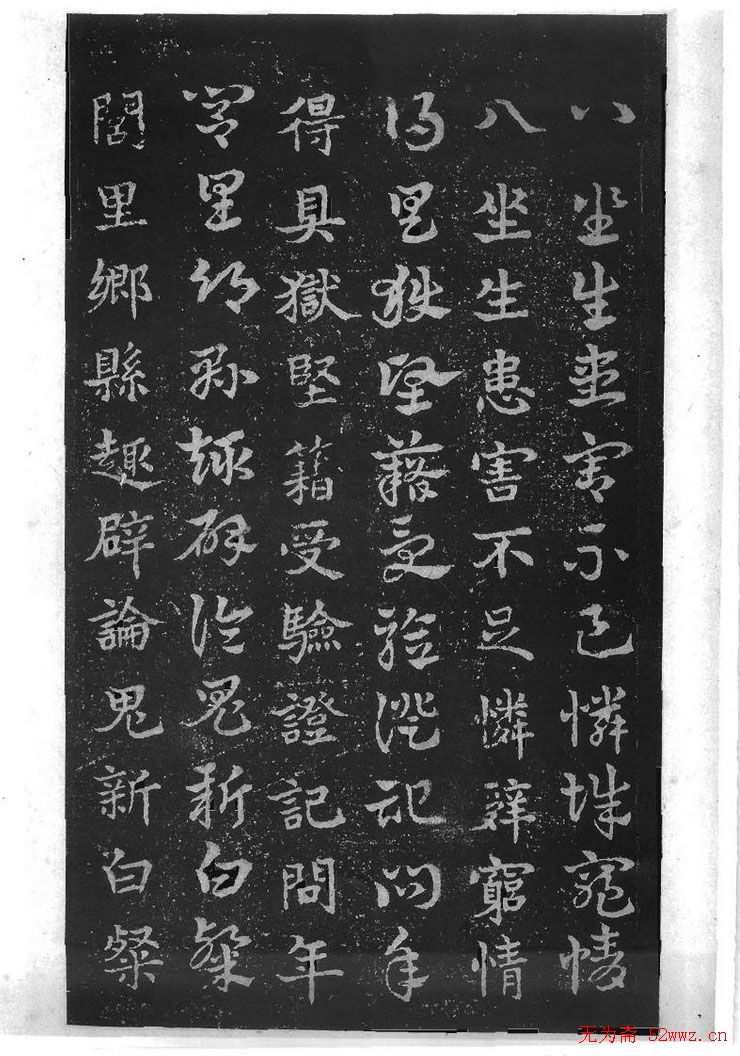 八坐生患害不足憐辤窮情
八坐生患害不足憐辤窮情
得具獄堅籍受驗證記問年
得具獄堅籍受驗證記問年
閭里鄉縣趣辟論鬼新白粲
閭里鄉縣趣辟論鬼新白粲
无为斋 52wwz.cn